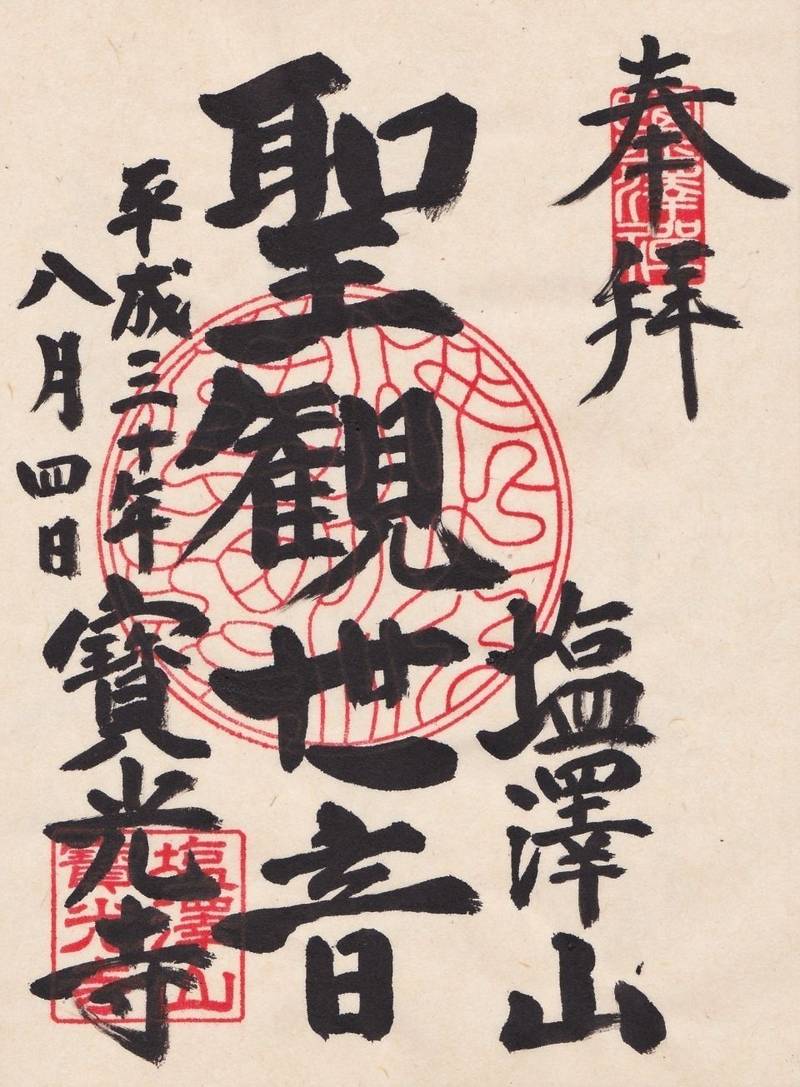 奉拝
塩澤山
聖観世音
平成三十年
八月四日
寳光寺
塩澤山
寳光寺